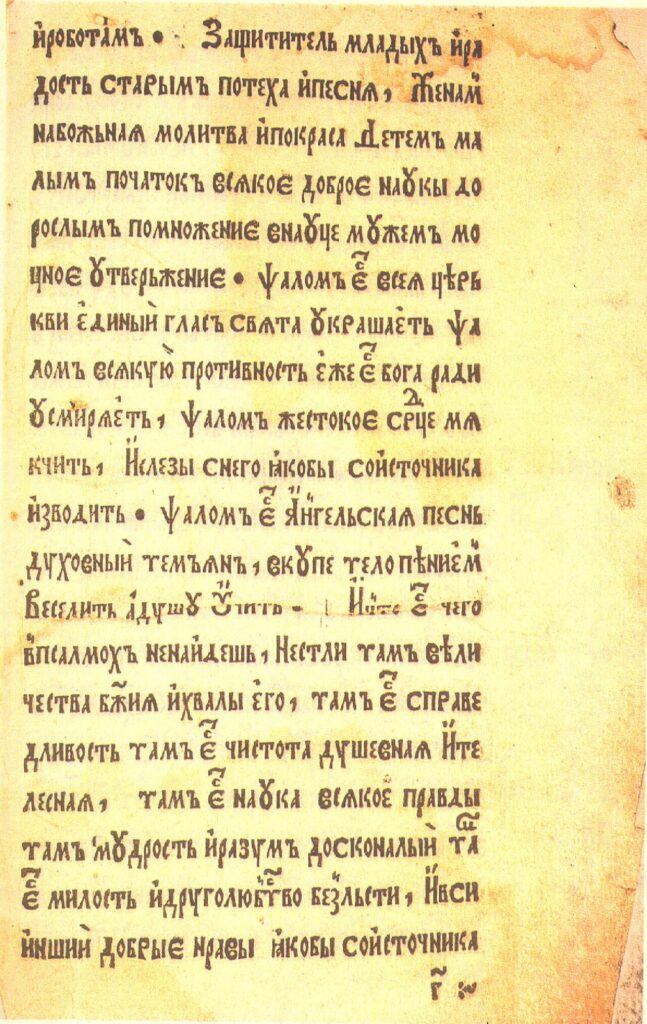 и҆роботамъ • Защититель младыхъ и҆ра
дость старымъ потеха и҆песня, Женам
набожьная молитва и҆покраса Детемъ ма
лымъ початокъ всякоє доброє наꙋкы до
рослымъ помножениє внаꙋце мꙋжемъ мо
цноє ꙋтвєрьжениє • ѱаломъ є҆ всея цѣрь
кви є҆диный гласъ свята ꙋкрашаєть ѱа
ломъ всякую противность є҆же є҆ бога ради
ꙋсмиряєть, ѱаломъ жестокоє срⷣце мя
кчить, И҆слезы снего ꙗкобы сои҆сточника
и҆зводить • ѱаломъ є҆ А҆нгельская песнь
дꙋховный темъянъ, вкꙋпе тело пѣниєм
Веселить а҆дꙋшꙋ є҆ чего
впсалмохъ ненайдешь, Нестли тамъ вѣли
чества бж҃ия и҆хвалы є҆го, тамъ є҆ справе
дливость тамъ є҆ чистота дꙋшевная И҆те
лесная, тамъ є҆ наꙋка всякоє правды
тамъ мꙋдрость и҆разꙋмъ досконалый та
є҆ милость и҆дрꙋголюбⷭтво безльсти, И҆вси
и҆нший добрыє нравы ꙗкобы сои҆сточника
г҃